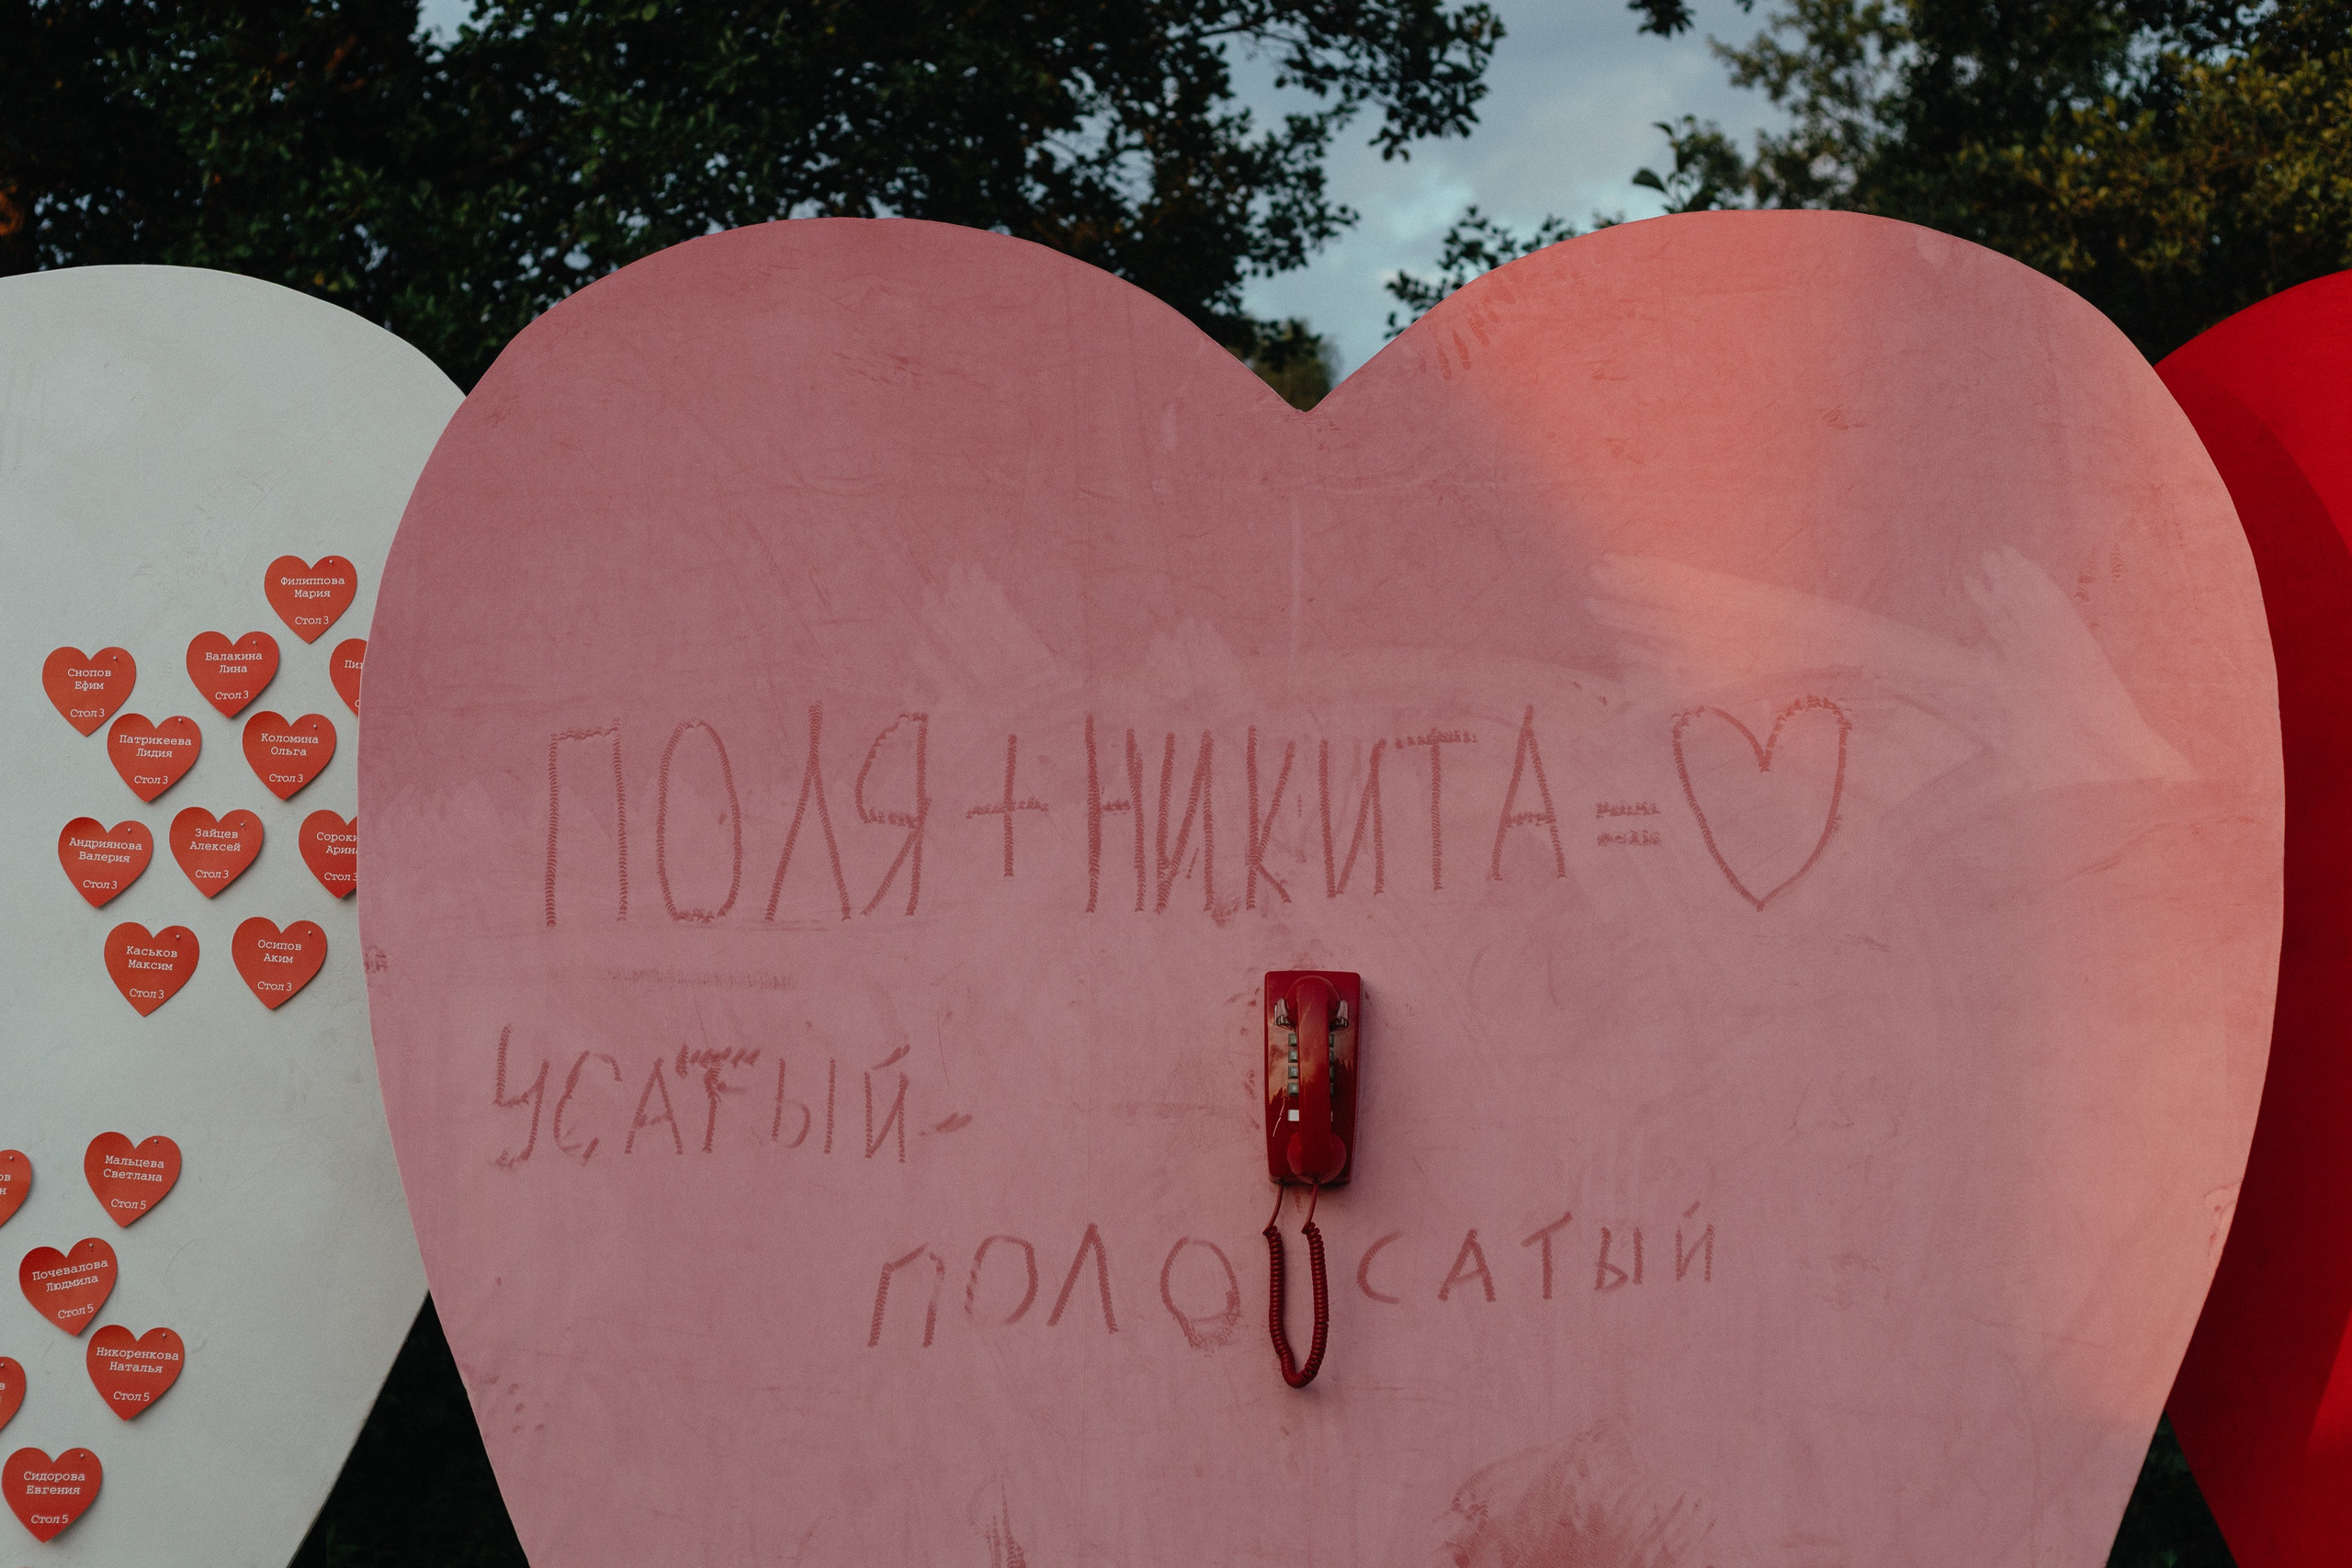 Филиппова
Мария
Стол 3
Снопов
Ефим
Стол 3
Балакина
Лина
Стол 3
Патрикеева
Лидия
Стол 3
Коломина
Ольга
Стол 3
Андриянова
Валерия
Стол 3
Зайцев
Алексей
Стол 3
Арина
Стол 3
Каськов
Максим
Стол 3
Осипов
Аким
Стол 3
Мальцева
Светлана
Стол 5
Почевалова
Людмила
Стол 5
Никоренкова
Наталья
Стол 5
Сидорова
Евгения
Стол 5
ПОЛЯ + НИКИТА = ♡
УСАТЫЙ -
ПОЛОСАТЫЙ